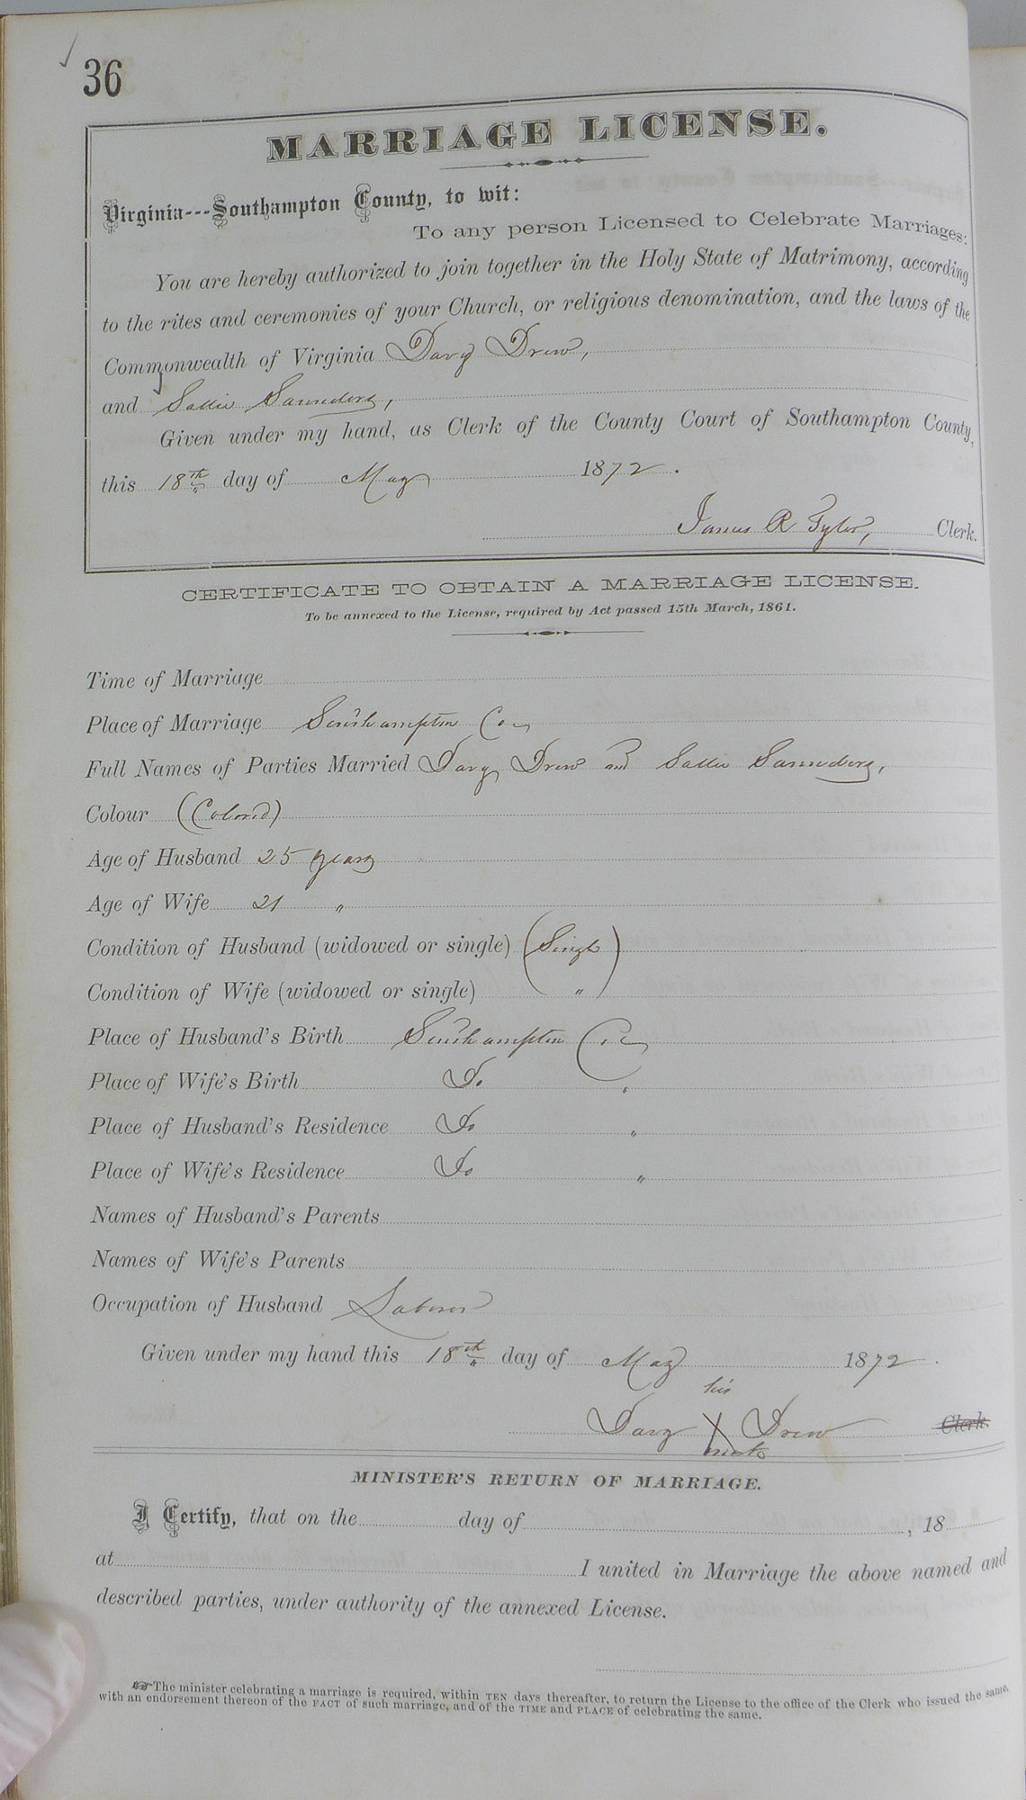 36
MARRIAGE LICENSE.
Virginia---Southampton County, to wit:
To any person Licensed to Celebrate Marriages:
You are hereby authorized to join together in the Holy State of Matrimony, according
to the rites and ceremonies of your Church, or religious denomination, and the laws of the
Commonwealth of Virginia Davy Drew,
and Sallie Saunders,
Given under my hand, as Clerk of the County Court of Southampton County,
this 18th day of May 1872.
James R Tyler, Clerk.
CERTIFICATE TO OBTAIN A MARRIAGE LICENSE.
To be annexed to the License, required by Act passed 15th March, 1861.
Time of Marriage
Place of Marriage Southampton Co
Full Names of Parties Married Davy Drew and Sallie Saunders,
Colour (Colored)
Age of Husband 25 years
Age of Wife 21 "
Condition of Husband (widowed or single) (Single)
Condition of Wife (widowed or single) "
Place of Husband's Birth Southampton Co
Place of Wife's Birth Do "
Place of Husband's Residence Do "
Place of Wife's Residence Do "
Names of Husband's Parents
Names of Wife's Parents
Occupation of Husband Laborer
Given under my hand this 18th day of May 1872.
his
Davy X Drew Clerk.
mark
MINISTER'S RETURN OF MARRIAGE.
I Certify, that on the day of , 18
at I united in Marriage the above named and
described parties, under authority of the annexed License.
☞The minister celebrating a marriage is required, within TEN days thereafter, to return the License to the office of the Clerk who issued the same,
with an endorsement thereon of the FACT of such marriage, and of the TIME and PLACE of celebrating the same.